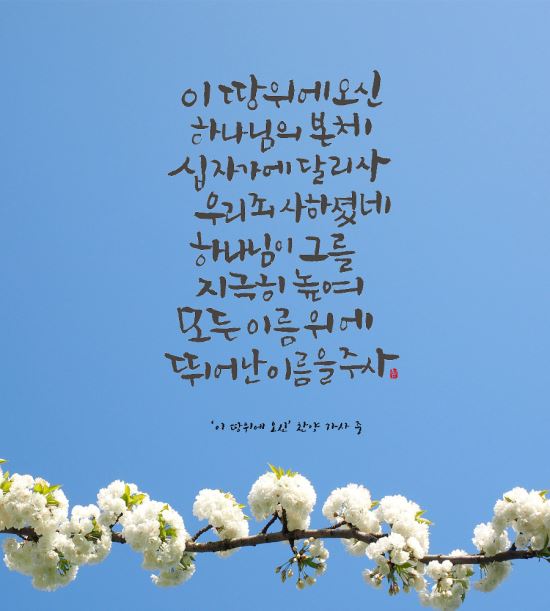 이 땅위에 오신
하나님의 본체
십자가에 달리사
우리죄 사하셨네
하나님이 그를
지극히 높여
모두 이름 위에
뛰어난 이름을 주사
'이 땅위에 오신' 찬양 가사 중